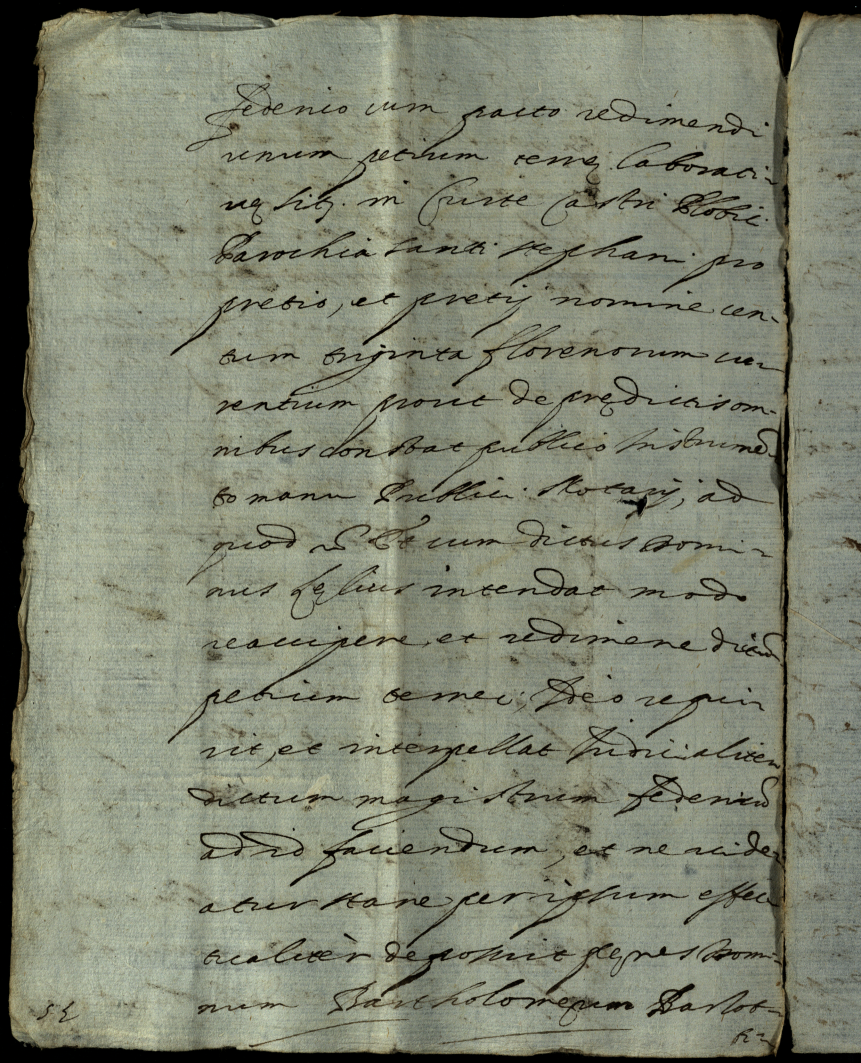 Federico cum pacto redimendi
unum petium terrę laborati-
vę sitę in Curte Castri Plobic.
Parochia Santi Stephani pro
pretio, et pretij nomine cen-
tum triginta florenorum cur-
rentium prout de prędictis om-
nibus constat publico Instrumē-
to manu Publici Notarij, ad
quod &c. Et cum dictus Domi-
nus intendat modo
reaccipere, et redimere dictū
petium terrei; Ideo requi-
rit, et interpellat Iudicialiter
dictum magistrum federicū
ad id faciendum, et ne vide-
atur stare per ipsum effec-
tualitèr deposuit penes Domi-
num Bartholomęum Bartot-